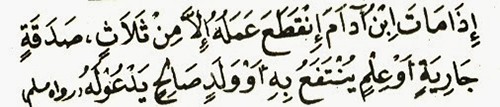 إِذَا مَاتَ ابْنُ آدَامَ إِنْقَطَعَ عَمَلُهُ إِلاَّ مِنْ ثَلَاثٍ، صَدَقَةٍ
جَارِيَةٍ أَوْ عِلْمٍ يُنْتَفَعُ بِهِ أَوْ وَلَدٍ صَالِحٍ يَدْعُوْلَهُ (رواه مسلم)